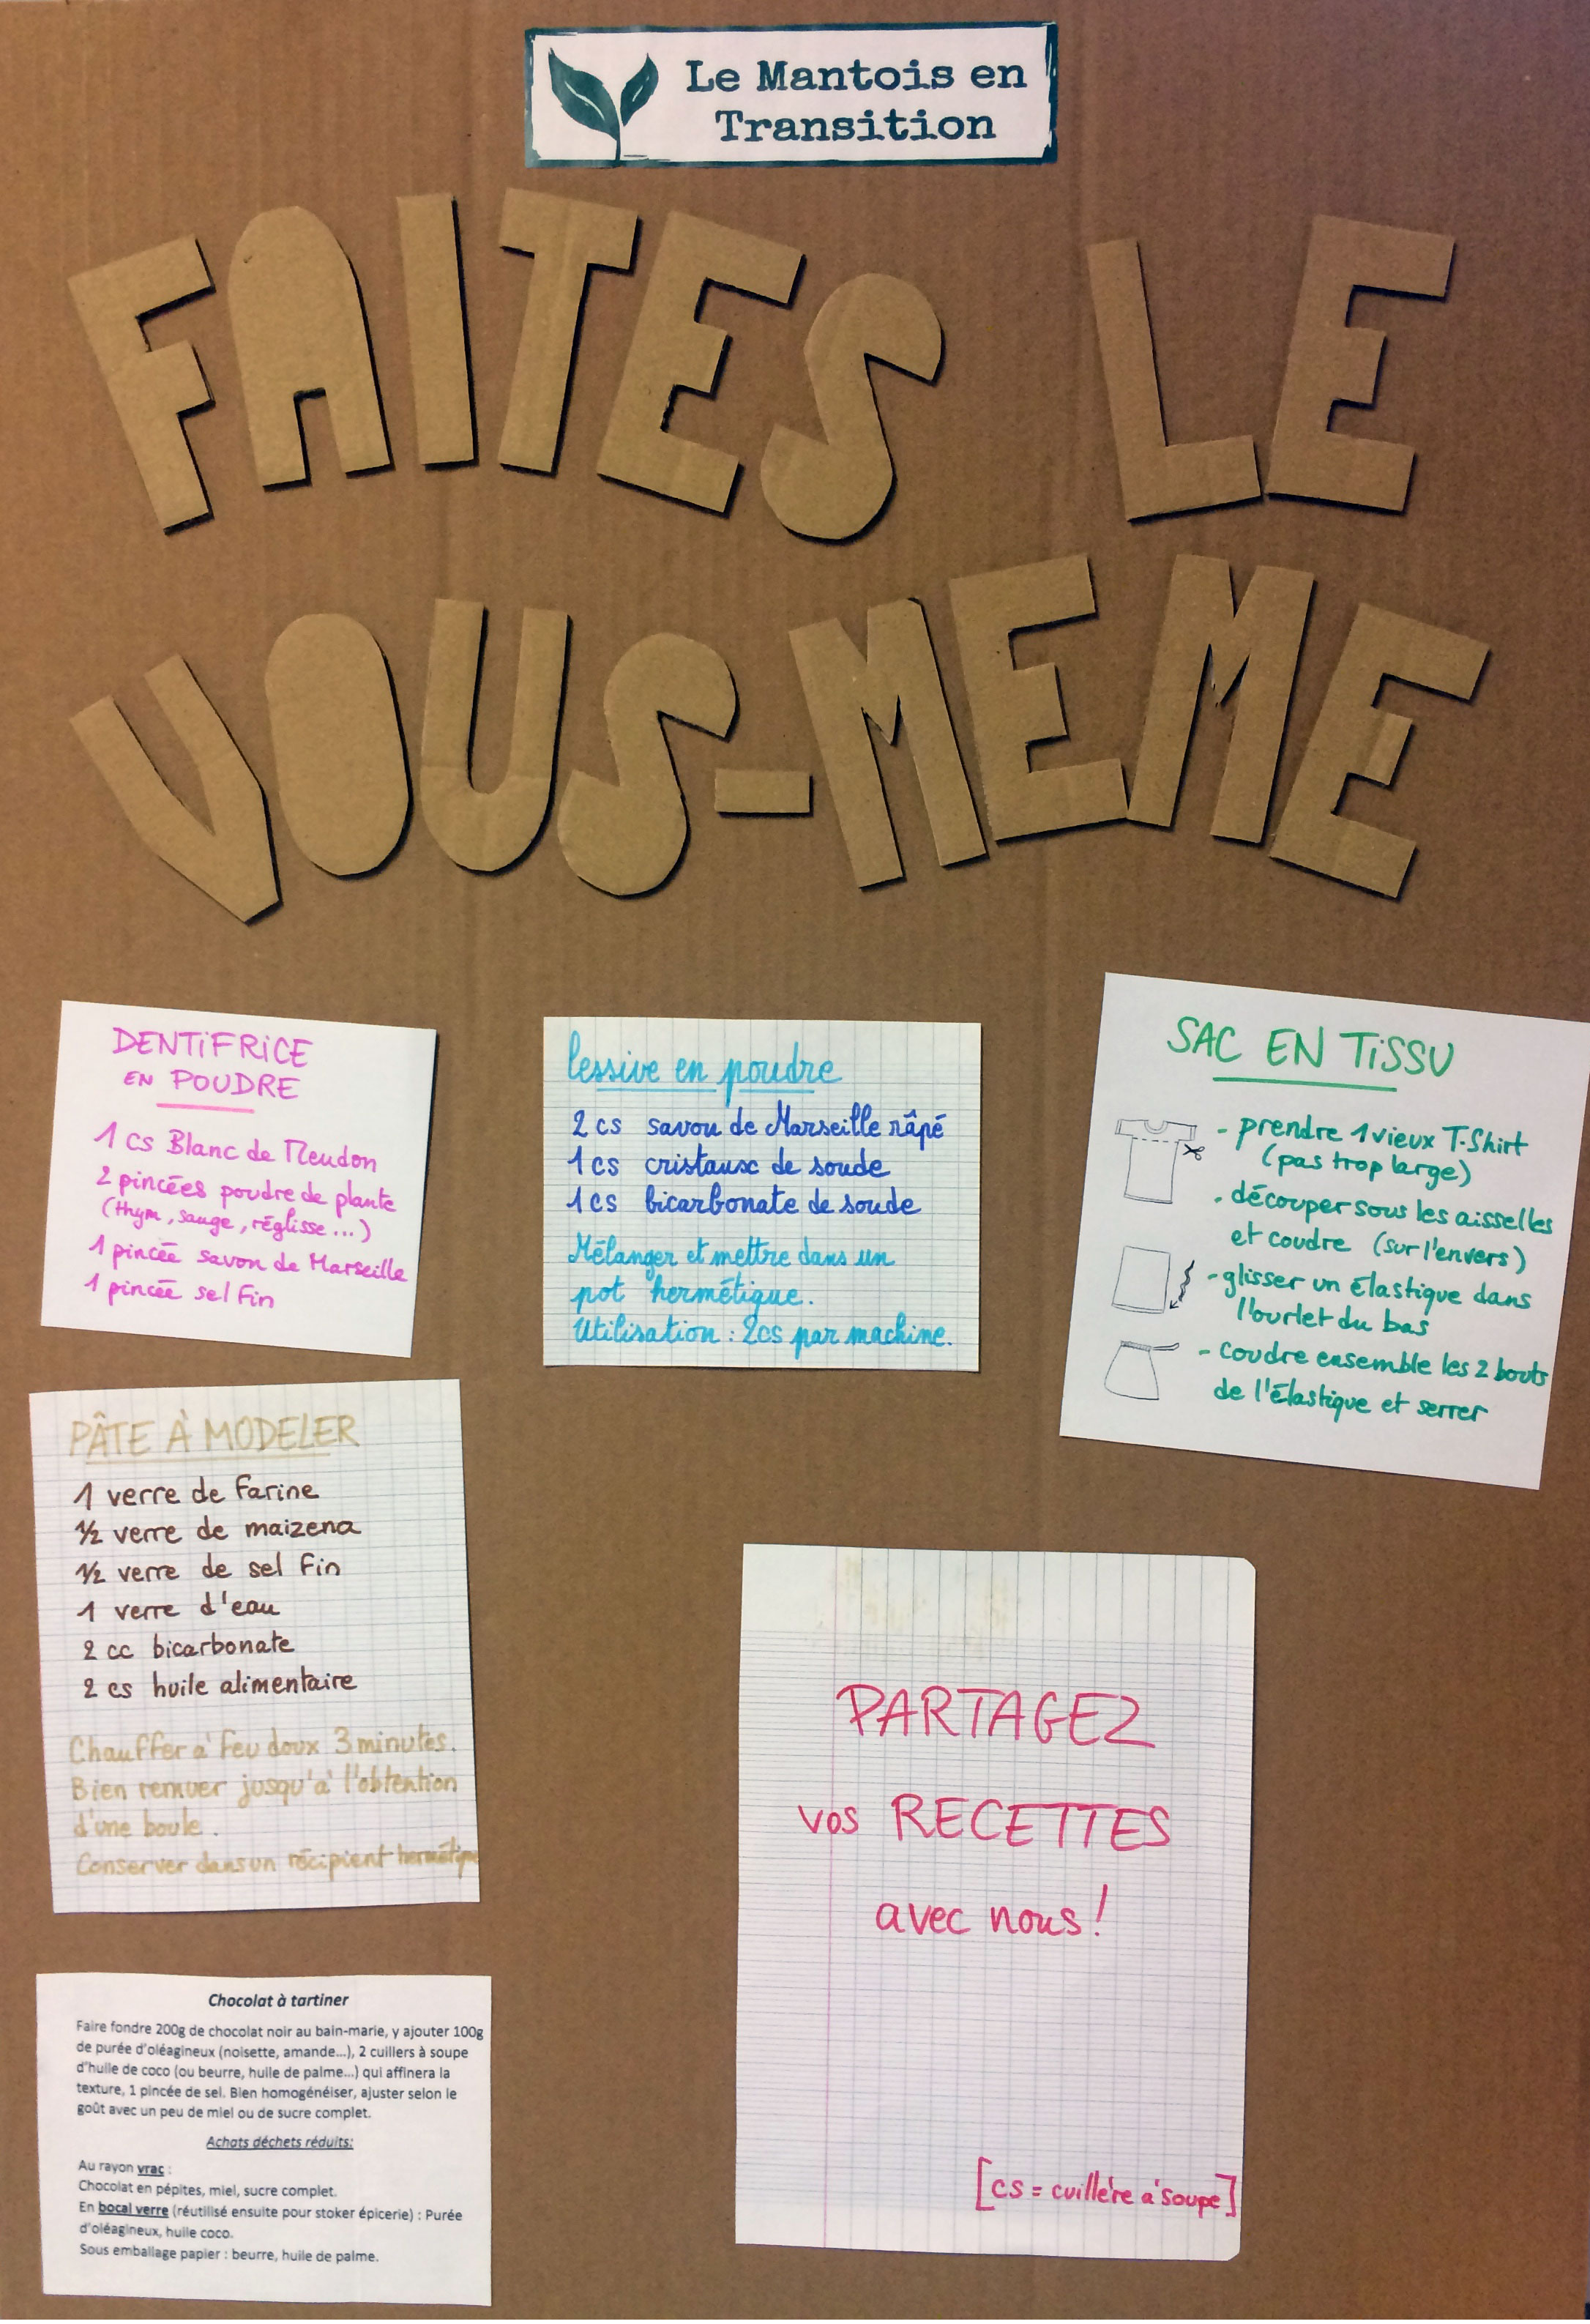 Le Mantois en
Transition
FAITES LE
VOUS-MEME
DENTIFRICE
EN POUDRE
1 cs Blanc de Meudon
2 pincées poudre de plante
(thym, sauge, réglisse...)
1 pincée savon de Marseille
1 pincée sel fin
lessive en poudre
2 cs savon de Marseille râpé
1 cs cristaux de soude
1 cs bicarbonate de soude
Mélanger et mettre dans un
pot hermétique.
Utilisation : 2cs par machine.
SAC EN TISSU
- prendre 1 vieux T-Shirt
(pas trop large)
- découper sous les aisselles
et coudre (sur l'envers)
- glisser un élastique dans
l'ourlet du bas
- coudre ensemble les 2 bouts
de l'élastique et serrer
PÂTE À MODELER
1 verre de farine
1/2 verre de maizena
1/2 verre de sel fin
1 verre d'eau
2 cc bicarbonate
2 cs huile alimentaire
Chauffer à feu doux 3 minutes.
Bien remuer jusqu'à l'obtention
d'une boule.
Conserver dans un récipient hermétique
Chocolat à tartiner
Faire fondre 200g de chocolat noir au bain-marie, y ajouter 100g
de purée d'oléagineux (noisette, amande...), 2 cuillers à soupe
d'huile de coco (ou beurre, huile de palme...) qui affinera la
texture, 1 pincée de sel. Bien homogénéiser, ajuster selon le
goût avec un peu de miel ou de sucre complet.
Achats déchets réduits:
Au rayon vrac :
Chocolat en pépites, miel, sucre complet.
En bocal verre (réutilisé ensuite pour stoker épicerie) : Purée
d'oléagineux, huile coco.
Sous emballage papier : beurre, huile de palme.
PARTAGEZ
vos RECETTES
avec nous!
[cs = cuillère à soupe]